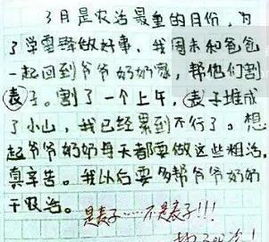 3月是农活最重的月份,为
了学雷锋做好事,我周末和爸爸
一起回到爷爷奶奶家,帮他们割
表子。割了一个上午,表子堆成
了小山,我已经累到不行了。想
起爷爷奶奶每天都要做这些粗活,
真辛苦。我以后要多帮爷爷奶奶
干农活。
是麦子……不是表子!!!